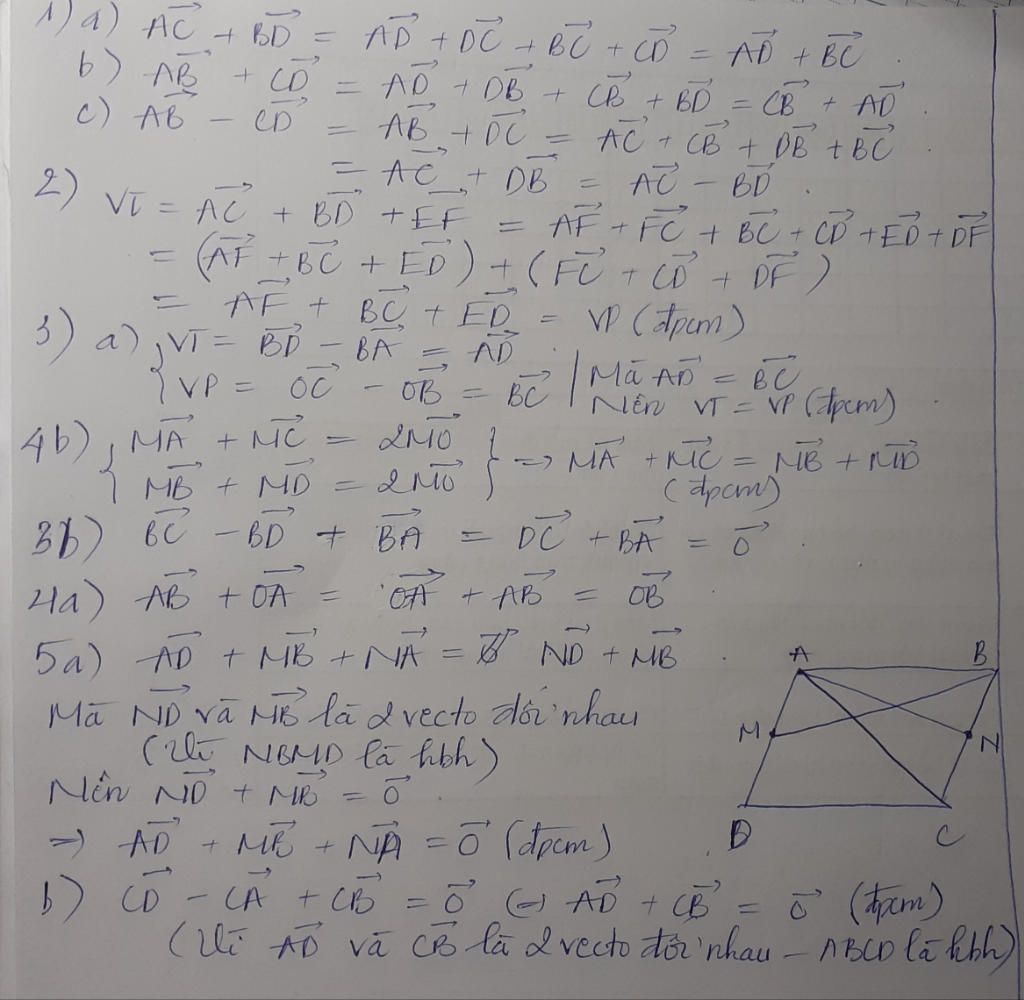 1) a) \overrightarrow{AC} + \overrightarrow{BD} = \overrightarrow{AD} + \overrightarrow{DC} + \overrightarrow{BC} + \overrightarrow{CD} = \overrightarrow{AD} + \overrightarrow{BC} .
b) \overrightarrow{AB} + \overrightarrow{CD} = \overrightarrow{AD} + \overrightarrow{DB} + \overrightarrow{CB} + \overrightarrow{BD} = \overrightarrow{CB} + \overrightarrow{AD} .
c) \overrightarrow{AB} - \overrightarrow{CD} = \overrightarrow{AB} + \overrightarrow{DC} = \overrightarrow{AC} + \overrightarrow{CB} + \overrightarrow{DB} + \overrightarrow{BC} .
= \overrightarrow{AC} + \overrightarrow{DB} = \overrightarrow{AC} - \overrightarrow{BD} .
2) VT = \overrightarrow{AC} + \overrightarrow{BD} + \overrightarrow{EF} = \overrightarrow{AF} + \overrightarrow{FC} + \overrightarrow{BC} + \overrightarrow{CD} + \overrightarrow{ED} + \overrightarrow{DF}
= (\overrightarrow{AF} + \overrightarrow{BC} + \overrightarrow{ED}) + (\overrightarrow{FC} + \overrightarrow{CD} + \overrightarrow{DF})
= \overrightarrow{AF} + \overrightarrow{BC} + \overrightarrow{ED} = VP (đpcm)
3) a) { VT = \overrightarrow{BD} - \overrightarrow{BA} = \overrightarrow{AD} .
VP = \overrightarrow{OC} - \overrightarrow{OB} = \overrightarrow{BC} | Mà \overrightarrow{AD} = \overrightarrow{BC}
Nên VT = VP (đpcm) .
4b) { \overrightarrow{MA} + \overrightarrow{MC} = 2\overrightarrow{MO}
\overrightarrow{MB} + \overrightarrow{MD} = 2\overrightarrow{MO} } => \overrightarrow{MA} + \overrightarrow{MC} = \overrightarrow{MB} + \overrightarrow{MD}
(đpcm)
3b) \overrightarrow{BC} - \overrightarrow{BD} + \overrightarrow{BA} = \overrightarrow{DC} + \overrightarrow{BA} = \overrightarrow{O} .
4a) \overrightarrow{AB} + \overrightarrow{OA} = \overrightarrow{OA} + \overrightarrow{AB} = \overrightarrow{OB} .
5a) \overrightarrow{AD} + \overrightarrow{MB} + \overrightarrow{NA} = \overrightarrow{ND} + \overrightarrow{MB} .
Mà \overrightarrow{ND} và \overrightarrow{MB} là 2 vecto đối nhau
(Vì NBMD là hbh)
Nên \overrightarrow{ND} + \overrightarrow{MB} = \overrightarrow{O} .
=> \overrightarrow{AD} + \overrightarrow{MB} + \overrightarrow{NA} = \overrightarrow{O} (đpcm)
A B
M N
D C
b) \overrightarrow{CD} - \overrightarrow{CA} + \overrightarrow{CB} = \overrightarrow{O} (=) \overrightarrow{AD} + \overrightarrow{CB} = \overrightarrow{O} (đpcm)
(Vì \overrightarrow{AD} và \overrightarrow{CB} là 2 vecto đối nhau – ABCD là hbh)